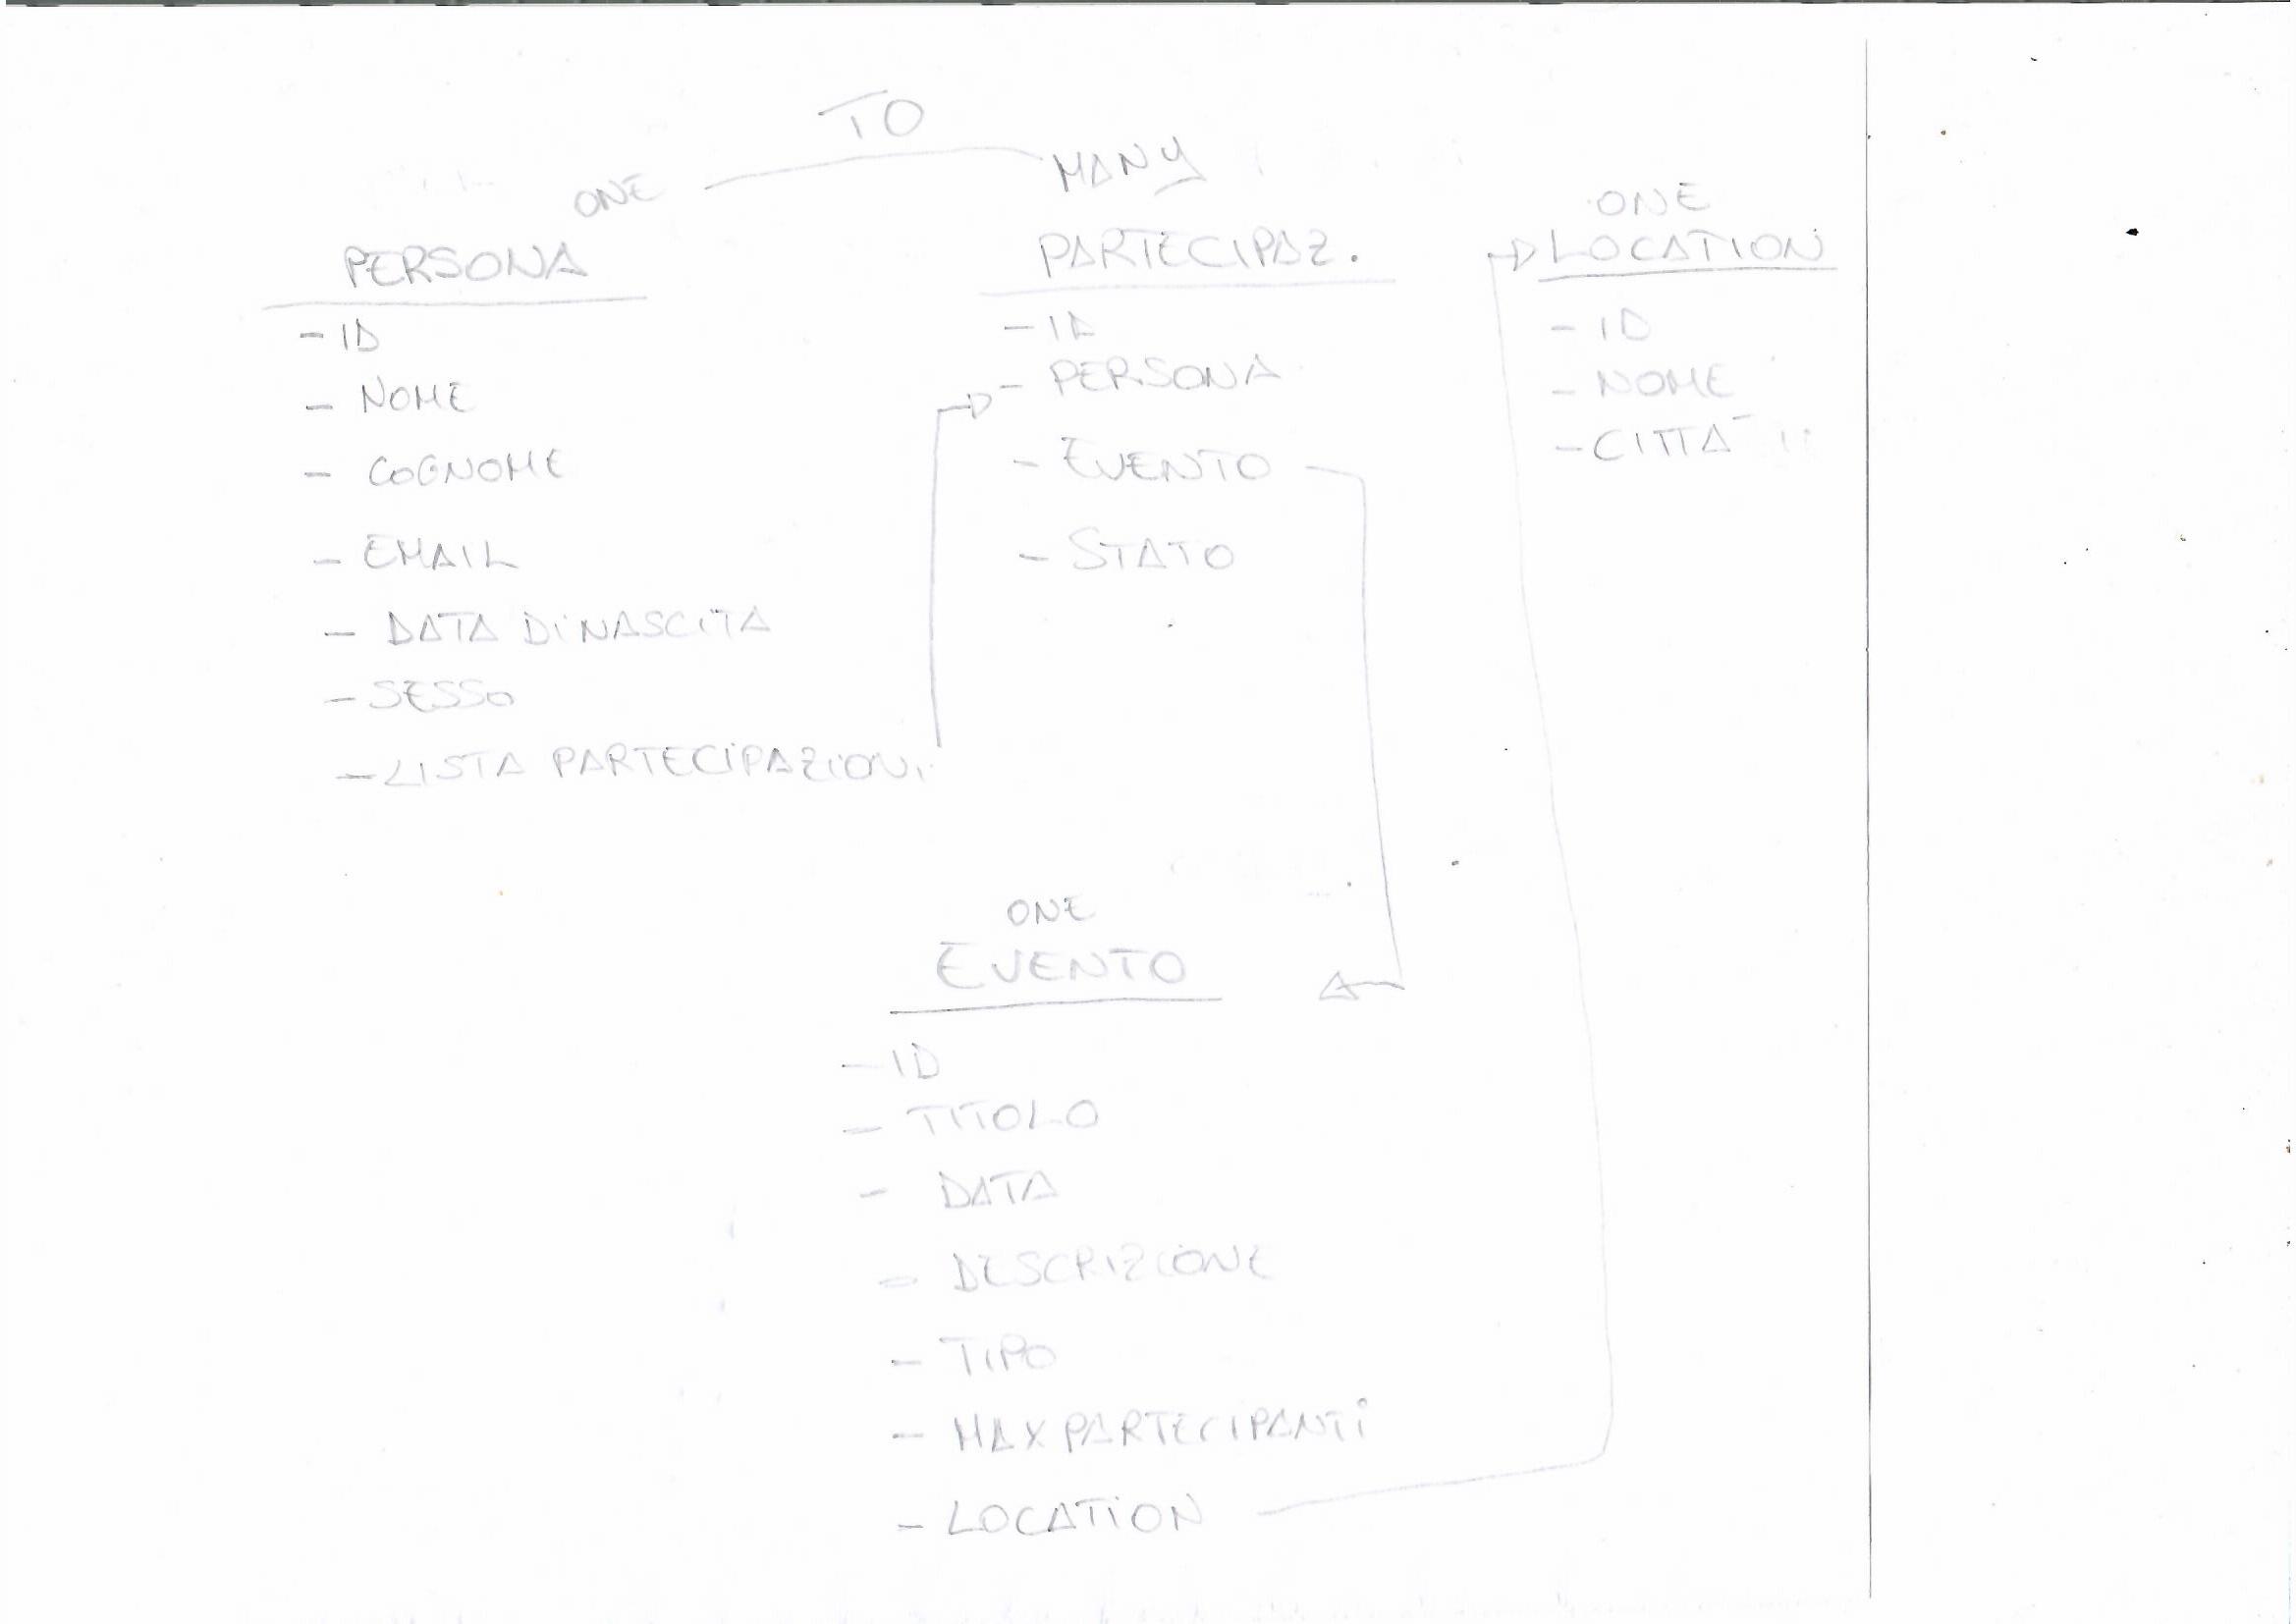 ONE TO MANY
PERSONA
- ID
- NOME
- COGNOME
- EMAIL
- DATA DI NASCITA
- SESSO
- LISTA PARTECIPAZIONI
PARTECIPAZ.
- ID
- PERSONA
- EVENTO
- STATO
ONE
LOCATION
- ID
- NOME
- CITTÀ
ONE
EVENTO
- ID
- TITOLO
- DATA
- DESCRIZIONE
- TIPO
- MAX PARTECIPANTI
- LOCATION